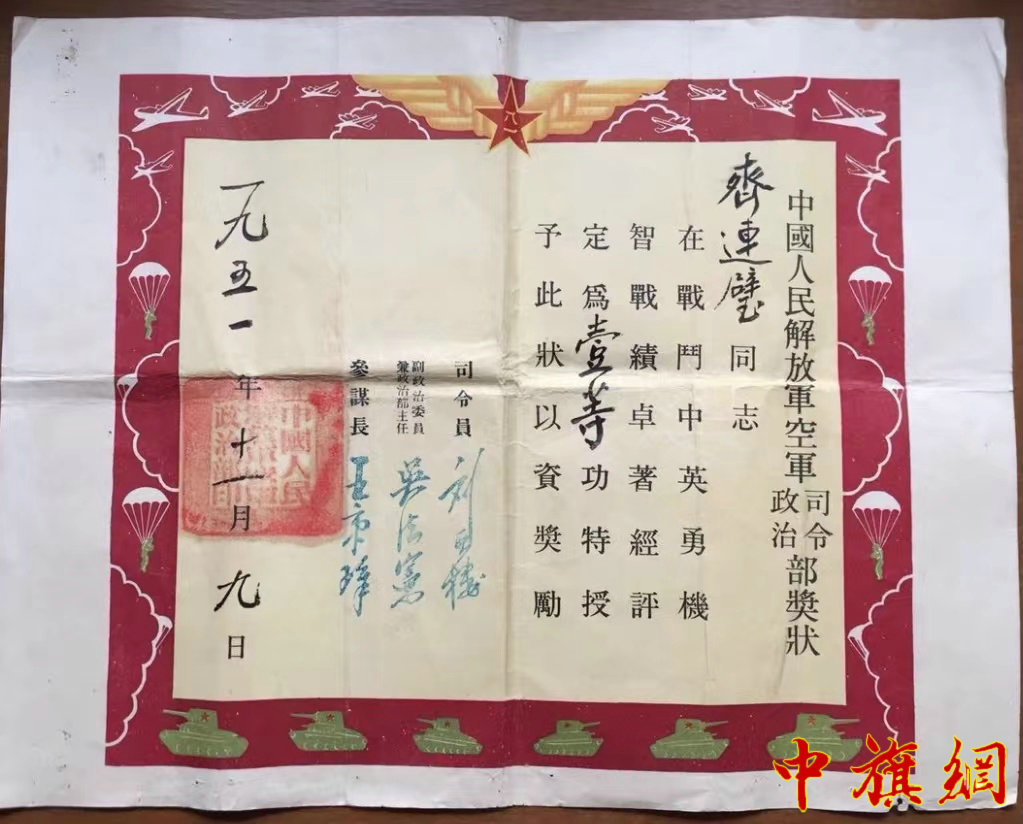 八一
中國人民解放軍空軍司令政治部獎狀
齊連璧同志
在戰鬥中英勇機
智戰績卓著經評
定爲壹等功特授
予此狀以資獎勵
司令員 刘亚楼
副政治委員兼政治部主任 吳法憲
參謀長 王秉璋
一九五一年十一月九日
中旗網